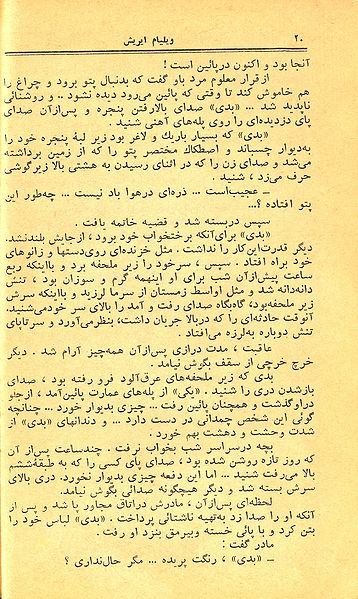 ۲۰
ویلیام ایریش
آنجا بود و اکنون درپائین است !
ازقرار معلوم مرد باو گفت که بدنبال پتو برود و چراغ را
هم خاموش کند تا وقتی که پائین می‌رود دیده نشود .. و روشنائی
ناپدید شد ... «بدی» صدای بالارفتن پنجره و پس‌ازآن صدای
پای دزدیده‌ای را روی پله‌های آهنی شنید .
«بدی» که بسیار باریك و لاغر بود زیر لبهٔ پنجره خود را
به‌دیوار چسباند و اصطکاك مختصر پتو را که از زمین برداشته
می‌شد و صدای زن را که در اثنای رسیدن به هشتی بالا زیرگوشی
حرف می‌زد ، شنید .
ــ عجیب‌است ... ذره‌ای درهوا باد نیست ... چه‌طور این
پتو افتاده ؟...
سپس دربسته شد و قضیه خاتمه یافت .
«بدی» برای‌آنکه برختخواب خود برود ، ازجایش بلندنشد.
دیگر قدرت‌این‌کار را نداشت . مثل خزنده‌ای روی‌دستها و زانوهای
خود براه افتاد . سپس ، سرخود را زیر ملحفه برد و بااینکه ربع
ساعت پیش‌ازآن شب برای او اینهمه گرم و سوزان بود ، تنش
دانه‌دانه شد و مثل اواسط زمستان از سرما لرزید و بااینکه سرش
زیر ملحفه‌بود، گاه‌بگاه صدای رفت و آمد را بالای سر خودمی‌شنید.
آنوقت حادثه‌ای را که دربالا جریان داشت، بنظرمی‌آورد و سرتاپای
تنش دوباره به‌لرزه می‌افتاد .
عاقبت ، مدت درازی پس‌ازآن همه‌چیز آرام شد . دیگر
خرچ خرچی از سقف بگوش نیامد .
بدی که زیر ملحفه‌های عرق‌آلود فرو رفته بود ، صدای
بازشدن دری را شنید . «یکی» از پله‌های عمارت پائین‌آمد ، ازجلو
دراوگذشت و همچنان پائین رفت ... چیزی بدیوار خورد ... چنانچه
گوئی این شخص چمدانی در دست دارد ... و دندانهای «بدی» از
شدت وحشت و دهشت بهم خورد .
بچه درسراسر شب بخواب نرفت . چندساعت پس‌از آن
که روز تازه روشن شده بود ، صدای پای کسی را که به طبقهٔ‌ششم
بالا می‌رفت شنید ... اما این دفعه چیزی بدیوار نخورد. دری بالای
سرش بسته شد و دیگر هیچگونه صدائی بگوش نیامد.
لحظه‌ای پس‌ازآن ، مادرش دراتاق مجاور پا شد و پس از
آنکه او را صدا زد به‌تهیه ناشتائی پرداخت . «بدی» لباس خود را
بتن کرد و با پائی خسته وبیرمق بنزد او رفت .
مادر گفت :
ــ «بدی» ، رنگت پریده ... مگر حال‌نداری ؟